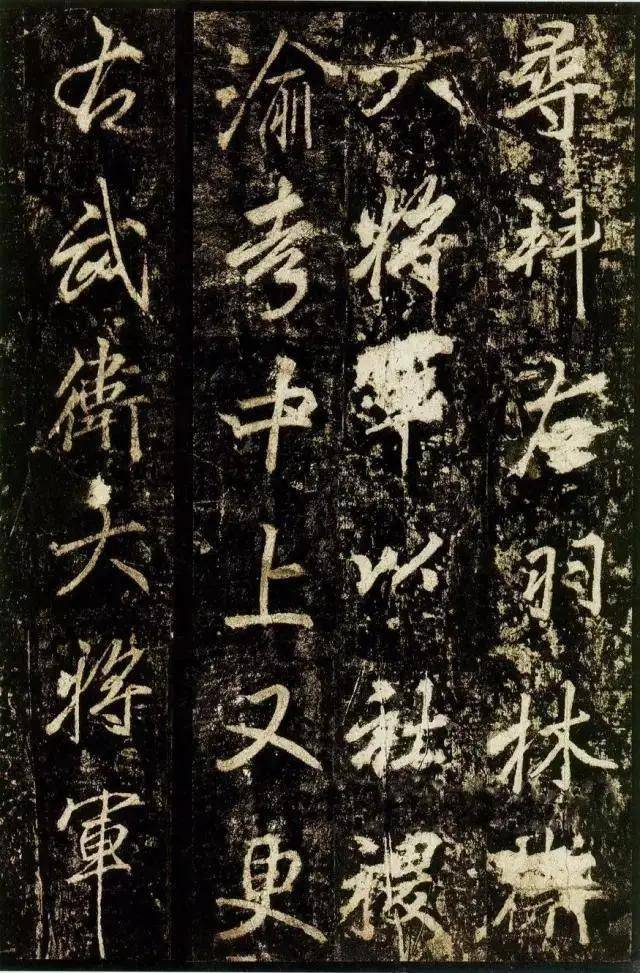 尋拜右羽林衛
大將軍以社稷
渝考中上又更
右武衛大將軍